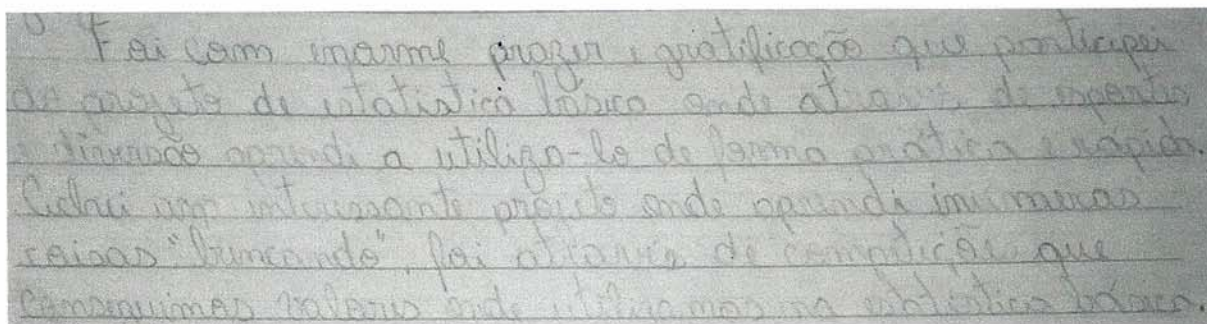 Foi com enorme prazer e gratificação que participei
do projeto de estatistica básica onde através de esporte
e diversão aprendi a utiliza-lo de forma prática e rápida.
Achei um interessante projeto onde aprendi inumeras
coisas "brincando", foi através de competição que
conseguimos valores onde utilizamos na estatistica básica.